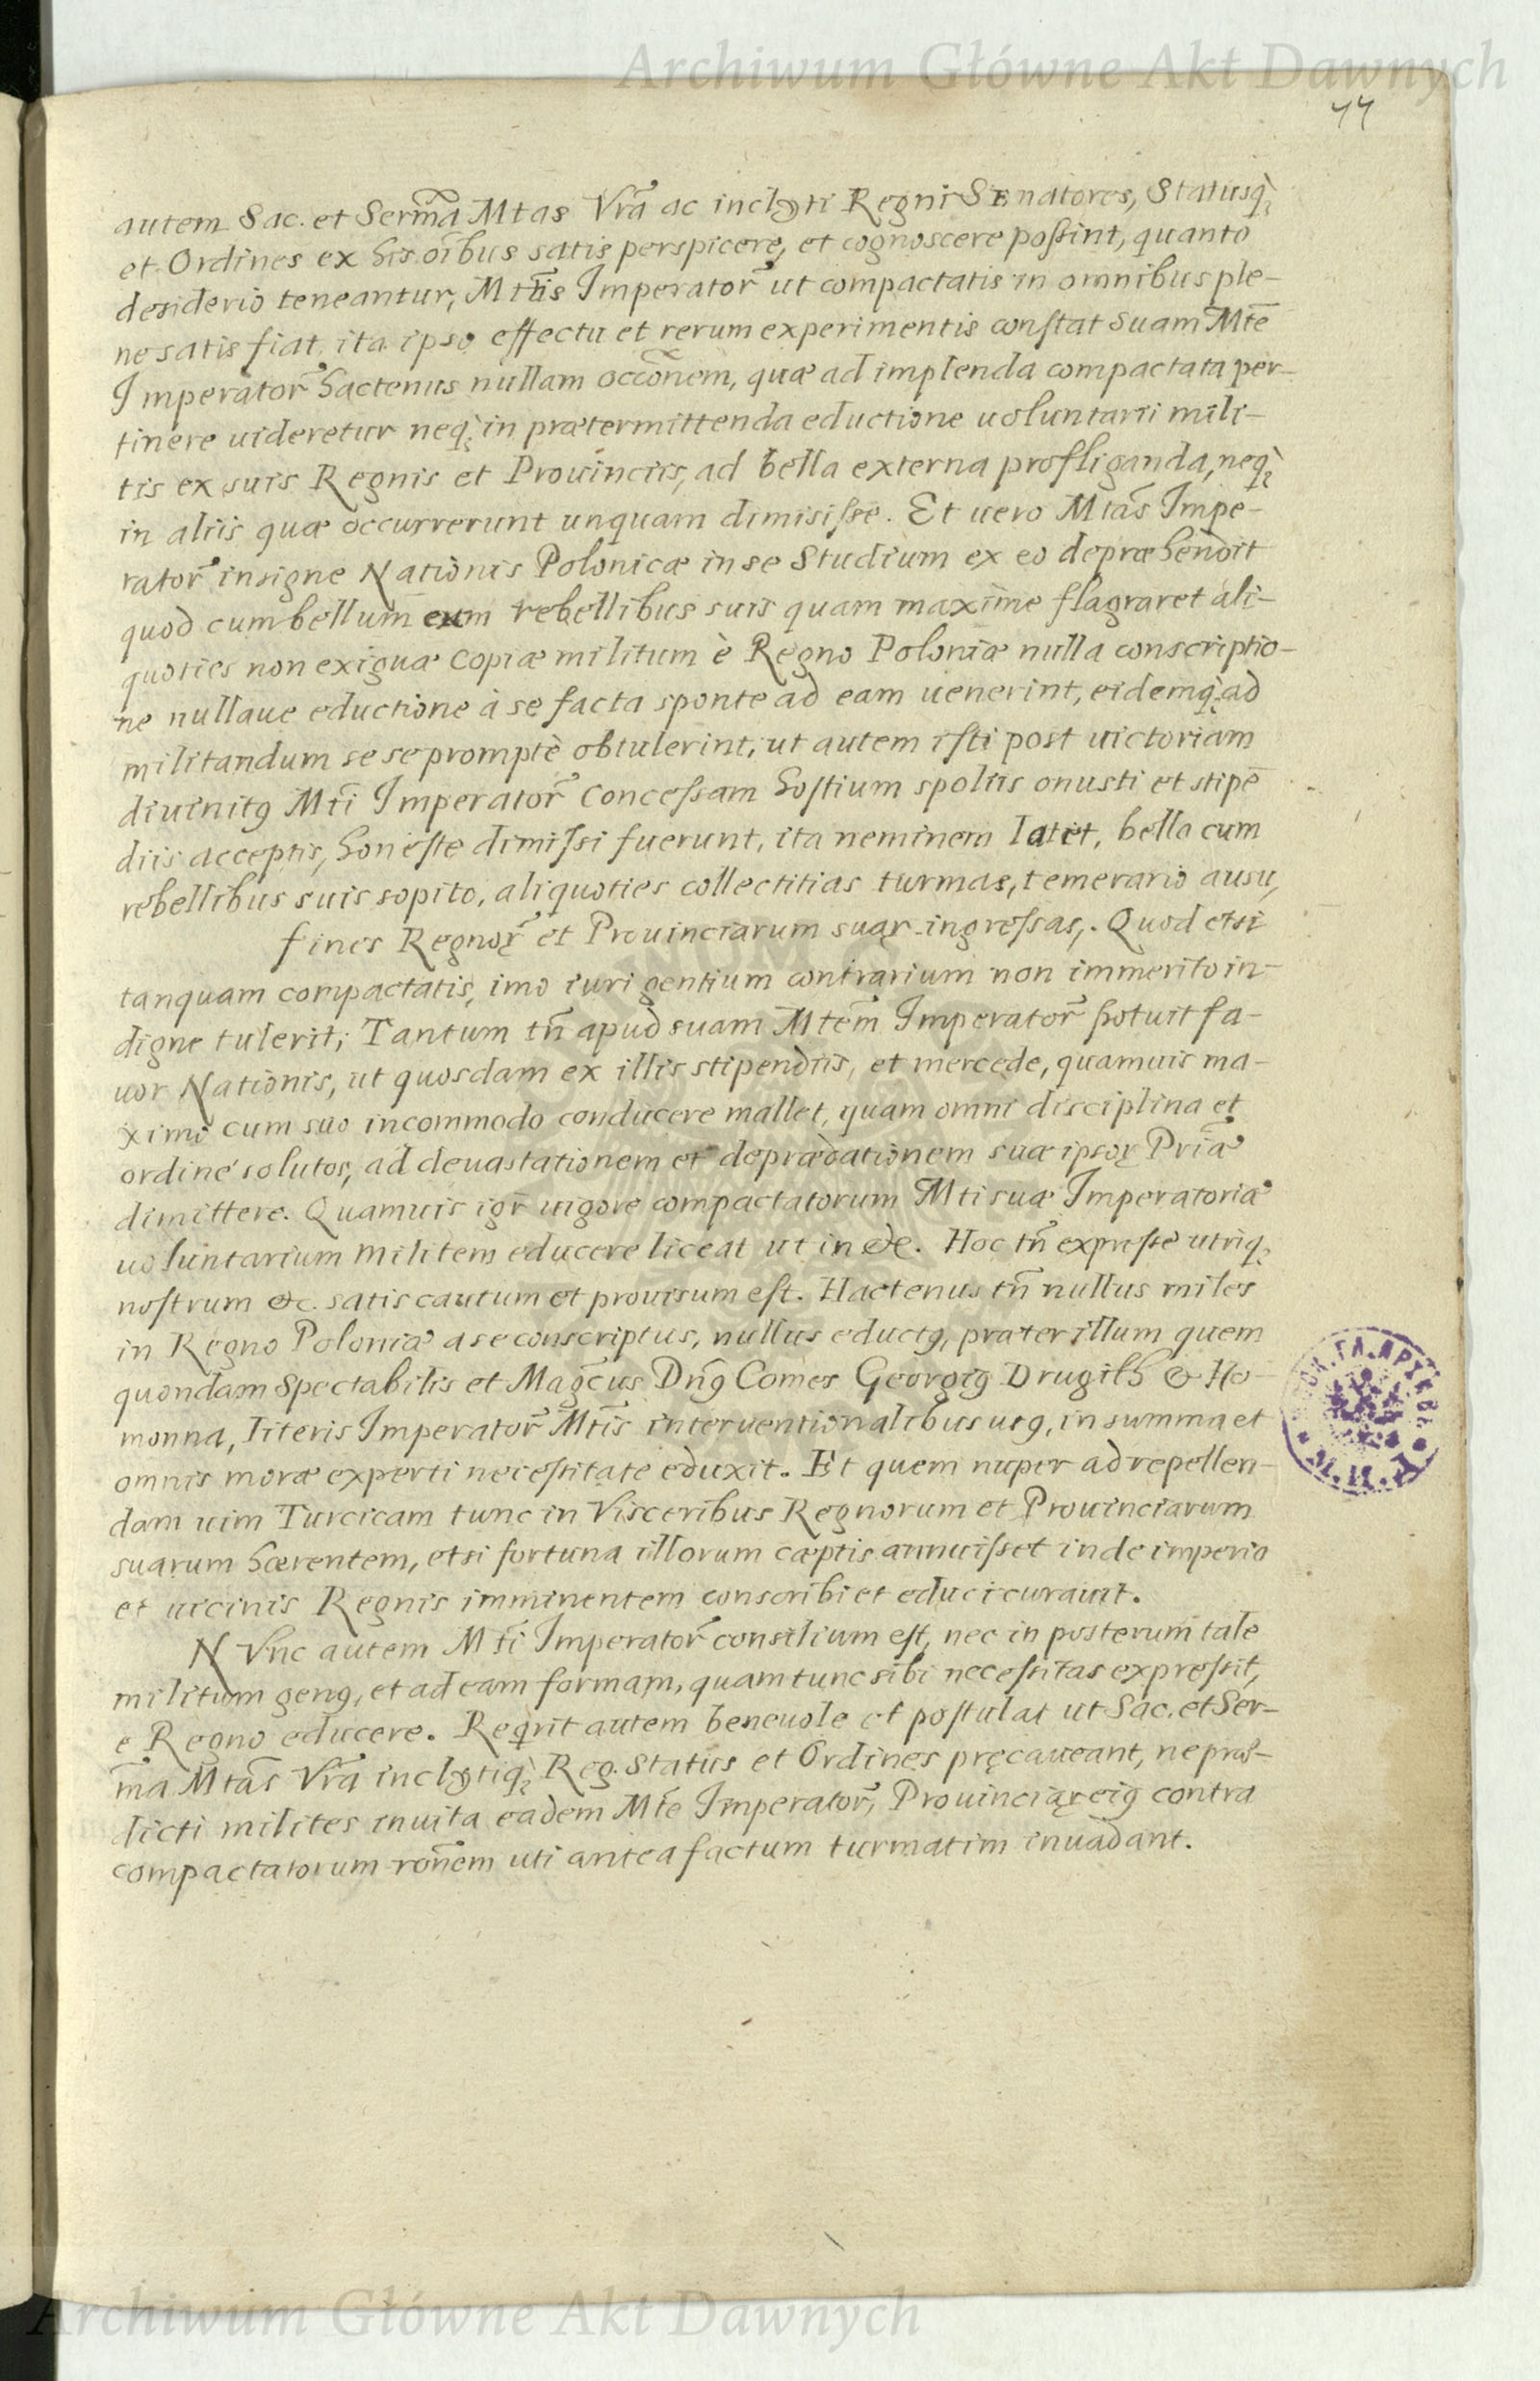 Archiwum Główne Akt Dawnych
44
autem Sac. et Serm̃a Mtas Vr̃a ac inclyti Regni Senatores, Statusq̀;
et Ordines ex his oĩbus satis perspicere, et cognoscere poßint, quanto
desiderio teneantur, Mtĩs Imperator̃ ut compactatis in omnibus ple-
ne satis fiat, ita ipso effectu et rerum experimentis constat suam Mtẽ
Imperator̃ hactenus nullam occõnem, quæ ad implenda compactata per-
tinere uideretur neq̀; in prætermittenda eductione uoluntarii mili-
tis ex suis Regnis et Prouinciis, ad bella externa profliganda, neq̀;
in aliis quæ occurrerunt unquam dimisisse. Et uero Mtãs Impe-
rator̃ insigne Nationis Polonicæ in se Studium ex eo depræhendit
quod cum bellum cum rebellibus suis quam maxime flagraret ali-
quoties non exiguæ copiæ militum è Regno Poloniæ nulla conscriptio-
ne nullaue eductione à se facta sponte ad eam uenerint, eidemq̀; ad
militandum sese promptè obtulerint, ut autem isti post uictoriam
diuinitꝰ Mtĩ Imperator̃ concessam hostium spoliis onusti et stipẽ
diis acceptis, honeste dimissi fuerunt, ita neminem latet, bello cum
rebellibus suis sopito, aliquoties collectitias turmas, temerario ausu,
fines Regnoꝝ̃ et Prouinciarum suaꝝ ingressas,. Quod etsi
tanquam compactatis, imo iuri gentium contrarium non immerito in-
digne tulerit; Tantum tñ apud suam Mtẽm Imperator̃ potuit fa-
uor Nationis, ut quosdam ex illis stipendiis, et mercede, quamuis ma-
ximo cum suo incommodo conducere mallet, quam omni disciplina et
ordine solutos, ad deuastationem et deprædationem suæ ipsoꝝ Pr̃iæ
dimittere. Quamuis igr̃ uigore compactatorum Mti suæ Imperatoriæ
uoluntarium militem educere liceat ut in &c. Hoc tñ expresse utriq;
nostrum &c. satis cautum et prouisum est. Hactenus tñ nullus miles
in Regno Poloniæ a se conscriptus, nullus eductꝰ, præter illum quem
quondam Spectabilis et Magc̃us Dñꝰ Comes Georgiꝰ Drugith & Ho-
monna, literis Imperator̃ Mtĩs interuentionalibus usꝰ, in summa et
omnis moræ experti necessitate eduxit. Et quem nuper ad repellen-
dam uim Turcicam tunc in Visceribus Regnorum et Prouinciarum
suarum hærentem, etsi fortuna illorum cæptis annuisset inde imperio
et uicinis Regnis imminentem conscribi et educi curauit.
NVnc autem Mtĩ Imperator̃ consilium est, nec in posterum tale
militum genꝰ, et ad eam formam, quam tunc sibi necessitas expressit,
e Regno educere. Reqrit autem beneuole et postulat ut Sac. et Ser-
m̃a Mtãs Vr̃a inclytiq̀; Reg. Status et Ordines pręcaueant, ne præ-
dicti milites inuita eadem Mtẽ Imperator̃, Prouinciaꝝ eiꝰ contra
compactatorum rõnem uti antea factum turmatim inuadant.
Archiwum Główne Akt Dawnych